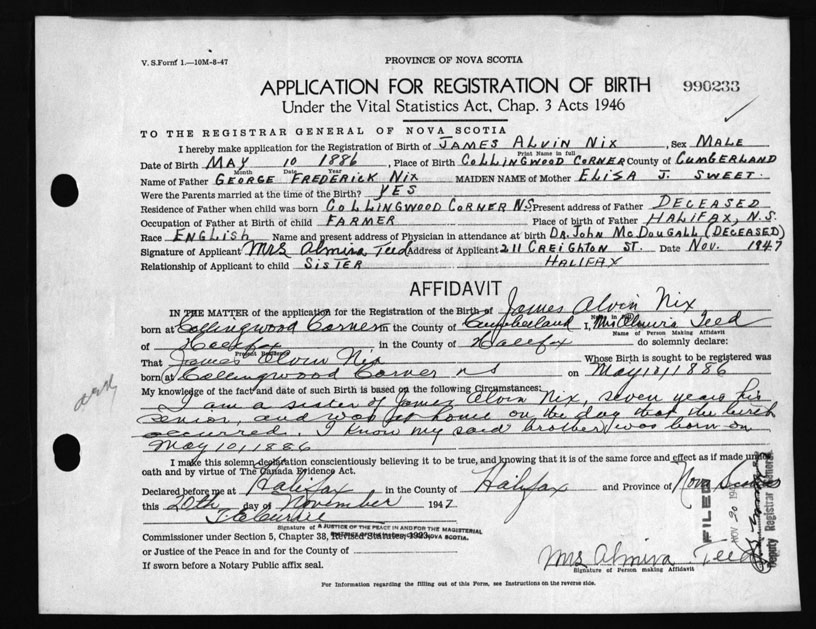 V. S. Form 1.—10M-8-47
PROVINCE OF NOVA SCOTIA
APPLICATION FOR REGISTRATION OF BIRTH
990233
Under the Vital Statistics Act, Chap. 3 Acts 1946
TO THE REGISTRAR GENERAL OF NOVA SCOTIA
I hereby make application for the Registration of Birth of JAMES ALVIN NIX, Sex MALE
Print Name in full
Date of Birth MAY 10 1886, Place of Birth COLLINGWOOD CORNER County of CUMBERLAND
Month Date Year
Name of Father GEORGE FREDERICK NIX MAIDEN NAME of Mother ELISA J. SWEET.
Were the Parents married at the time of the Birth? YES
Residence of Father when child was born COLLINGWOOD CORNER N.S. Present address of Father DECEASED
Occupation of Father at Birth of child FARMER Place of birth of Father HALIFAX, N.S.
Race ENGLISH Name and present address of Physician in attendance at birth DR. JOHN McDOUGALL (DECEASED)
Signature of Applicant Mrs Almira Teed Address of Applicant 211 CREIGHTON ST. Date NOV. 1947
Relationship of Applicant to child SISTER HALIFAX
AFFIDAVIT
IN THE MATTER of the application for the Registration of Birth of James Alvin Nix
born at Collingwood Corner in the County of Cumberland I, Mrs Almira Teed
Name of Person Making Affidavit
of Halifax in the County of Halifax do solemnly declare:
Present Residence
That James Alvin Nix Whose Birth is sought to be registered was
born at Collingwood Corner N S on May 10, 1886
My knowledge of the fact and date of such Birth is based on the following Circumstances:
I am a sister of James Alvin Nix, seven years his
senior, and was at home on the day that the birth
occurred. I know my said brother was born on
May 10, 1886
I make this solemn declaration conscientiously believing it to be true, and knowing that it is of the same force and effect as if made under
oath and by virtue of The Canada Evidence Act.
Declared before me at Halifax in the County of Halifax and Province of Nova Scotia
this 20th day of November 1947
Signature of A JUSTICE OF THE PEACE IN AND FOR THE MAGISTERIAL
Commissioner under Section 5, Chapter 38, Revised Statutes, 1923.
or Justice of the Peace in and for the County of
If sworn before a Notary Public affix seal.
Mrs Almira Teed
Signature of Person making Affidavit
FILED
NOV 20
Deputy Registrar General
For Information regarding the filling out of this Form, see Instructions on the reverse side.